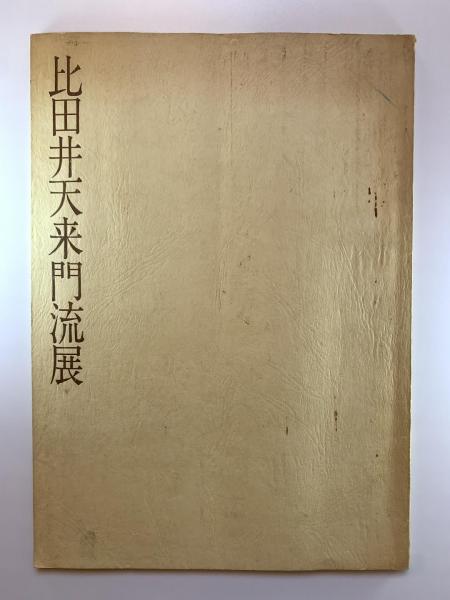 比田井天来門流展